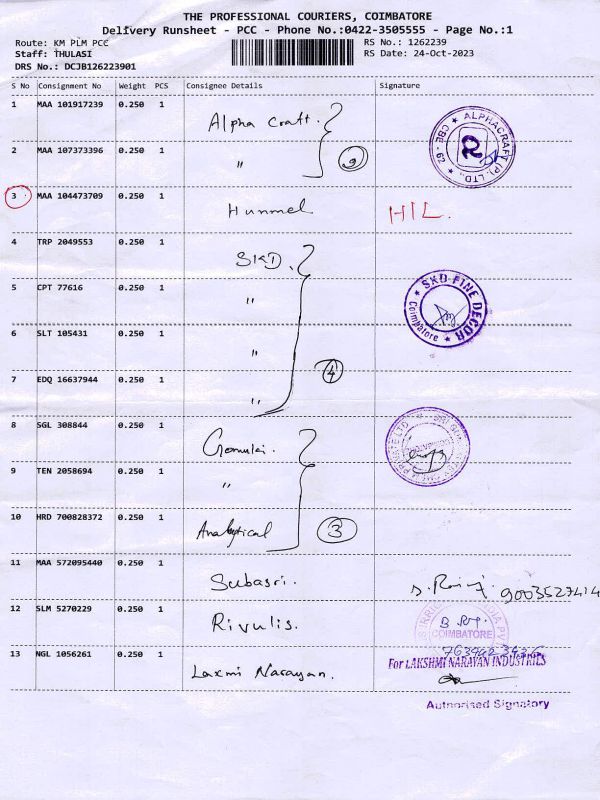 THE PROFESSIONAL COURIERS, COIMBATORE
Delivery Runsheet - PCC - Phone No.:0422-3505555 - Page No.:1
Route: KM PLM PCC RS No.: 1262239
Staff: THULASI RS Date: 24-Oct-2023
DRS No.: DCJB126223901
S No Consignment No Weight PCS Consignee Details Signature
1 MAA 101917239 0.250 1 Alpha Craft. ALPHACRAFT (P) LTD., CBE - 29
2 MAA 107373396 0.250 1 〃 2
3 MAA 104473709 0.250 1 Hummel HIL.
4 TRP 2049553 0.250 1 SKD.
5 CPT 77616 0.250 1 〃 SKD FINE DECOR Coimbatore
6 SLT 105431 0.250 1 〃
7 EDQ 16637944 0.250 1 〃 4
8 SGL 308844 0.250 1
9 TEN 2058694 0.250 1 〃
10 HRD 700828372 0.250 1 Analytical 3
11 MAA 572095440 0.250 1 Subasri. 9003527414
12 SLM 5270229 0.250 1 Rivulis. COIMBATORE
13 NGL 1056261 0.250 1 Laxmi Narayan. For LAKSHMI NARAYAN INDUSTRIES
Authorised Signatory